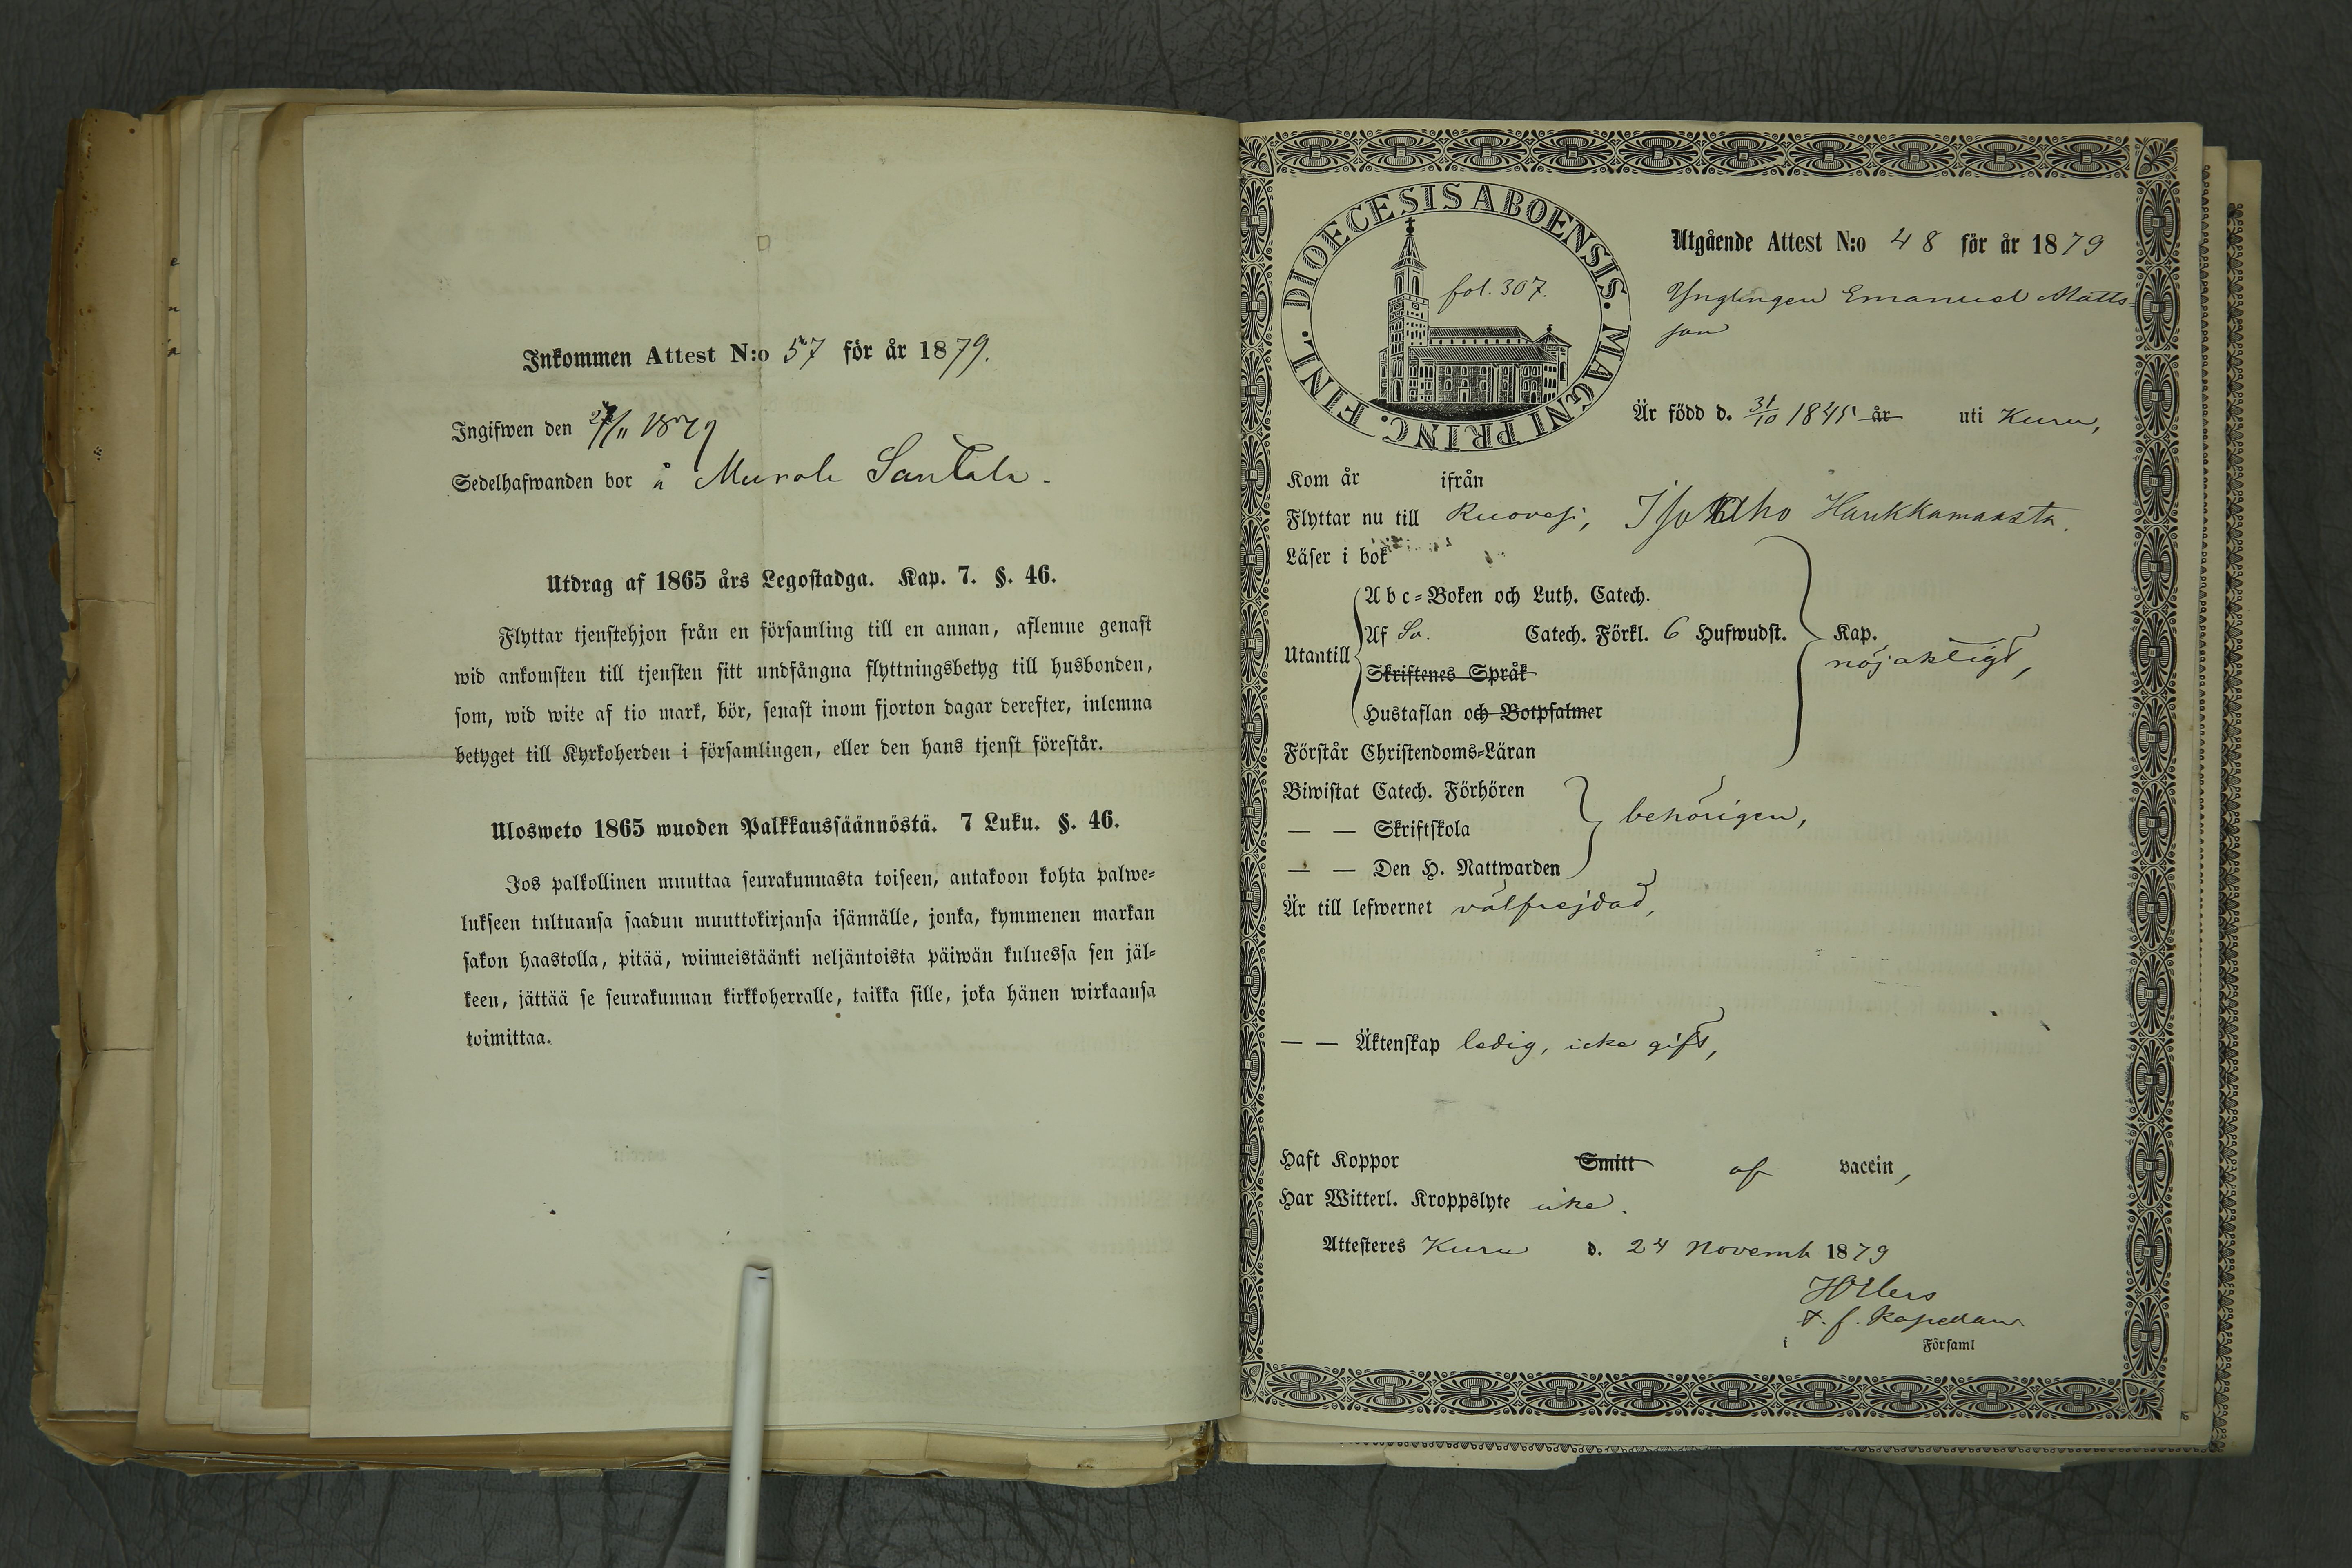 Inkommen Attest N:o 57 för år 1879.
Ingifwen den 27/11 1879
Sedelhafwanden bor å Murole Santala.
Utdrag af 1865 års Legostadga. Kap. 7. §. 46.
Flyttar tjenstehjon från en församling till en annan, aflemne genast
wid ankomsten till tjensten sitt undfångna flyttningsbetyg till husbonden,
som, wid wite af tio mark, bör, senast inom fjorton dagar derefter, inlemna
betyget till Kyrkoherden i församlingen, eller den hans tjenst förestår.
Ulosweto 1865 wuoden Palkkaussäännöstä. 7 Luku. §. 46.
Jos palkollinen muuttaa seurakunnasta toiseen, antakoon kohta palwe=
lukseen tultuansa saadun muuttokirjansa isännälle, jonka, kymmenen markan
sakon haastolla, pitää, wiimeistäänki neljäntoista päiwän kuluessa sen jäl=
keen, jättää se seurakunnan kirkkoherralle, taikka sille, joka hänen wirkaansa
toimittaa.
DIOECESIS ABOENSIS. MAGNI PRINC. FINL.
fol. 307.
Utgående Attest N:o 48 för år 1879
Ynglingen Emanuel Matts=
son
Är född d. 31/10 1845 år uti Kuru,
Kom år ifrån
Flyttar nu till Ruovesi, Haukkamaasta.
Läser i bok
Abc=Boken och Luth. Catech.
Utantill Af Sv. Catech. Förkl. 6 Hufwudst. Kap.
nöjaktigt,
Skriftenes Språk
Hustaflan och Botpsalmer
Förstår Christendoms=Läran
Biwistat Catech. Förhören
— — Skriftskola behörigen,
— — Den H. Nattwarden
Är till lefwernet välfrejdad,
— — Äktenskap ledig, icke gift,
Haft Koppor Smitt af vaccin,
Har Witterl. Kroppslyte icke.
Attesteres Kuru d. 24 Novemb 1879
t. f. Kapellan
i Församl